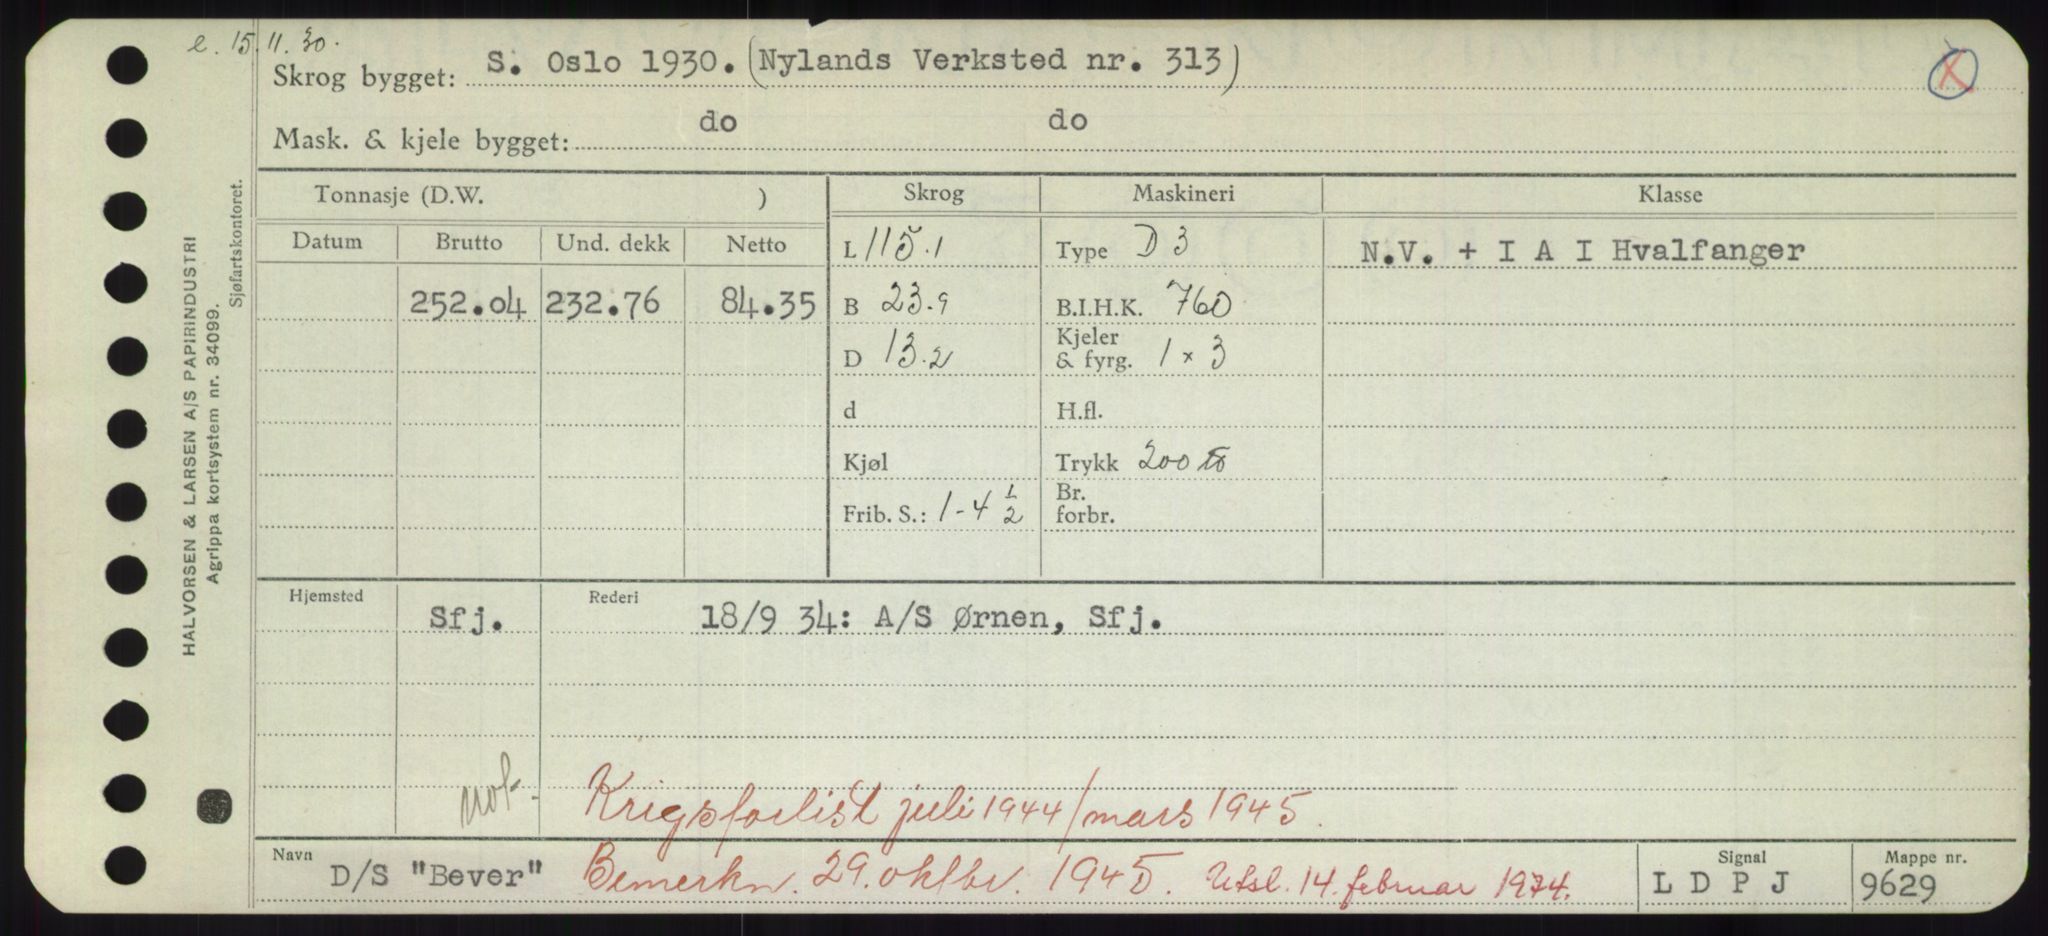 e. 15.11.30.
Skrog bygget: S. Oslo 1930. (Nylands Verksted nr. 313)
X
Mask. & kjele bygget: do do
Tonnasje (D.W. )
Skrog
Maskineri
Klasse
Datum Brutto Und. dekk Netto
252.04 232.76 84.35
L 115.1
B 23.9
D 13.2
d
Kjøl
Frib. S.: 1-4 1/2
Type D 3
B.I.H.K. 760
Kjeler
& fyrg. 1 x 3
H.fl.
Trykk 200 lb
Br.
forbr.
N.V. + I A I Hvalfanger
Hjemsted Sfj.
Rederi 18/9 34: A/S Ørnen, Sfj.
not.
Krigsforlist juli 1944/mars 1945.
Navn D/S "Bever"
Bemerkn. 29. oktbr. 1945. Utsl. 14. februar 1974.
Signal
L D P J
Mappe nr.
9629
HALVORSEN & LARSEN A/S PAPIRINDUSTRI
Agrippa kortsystem nr. 34099.
Sjøfartskontoret.